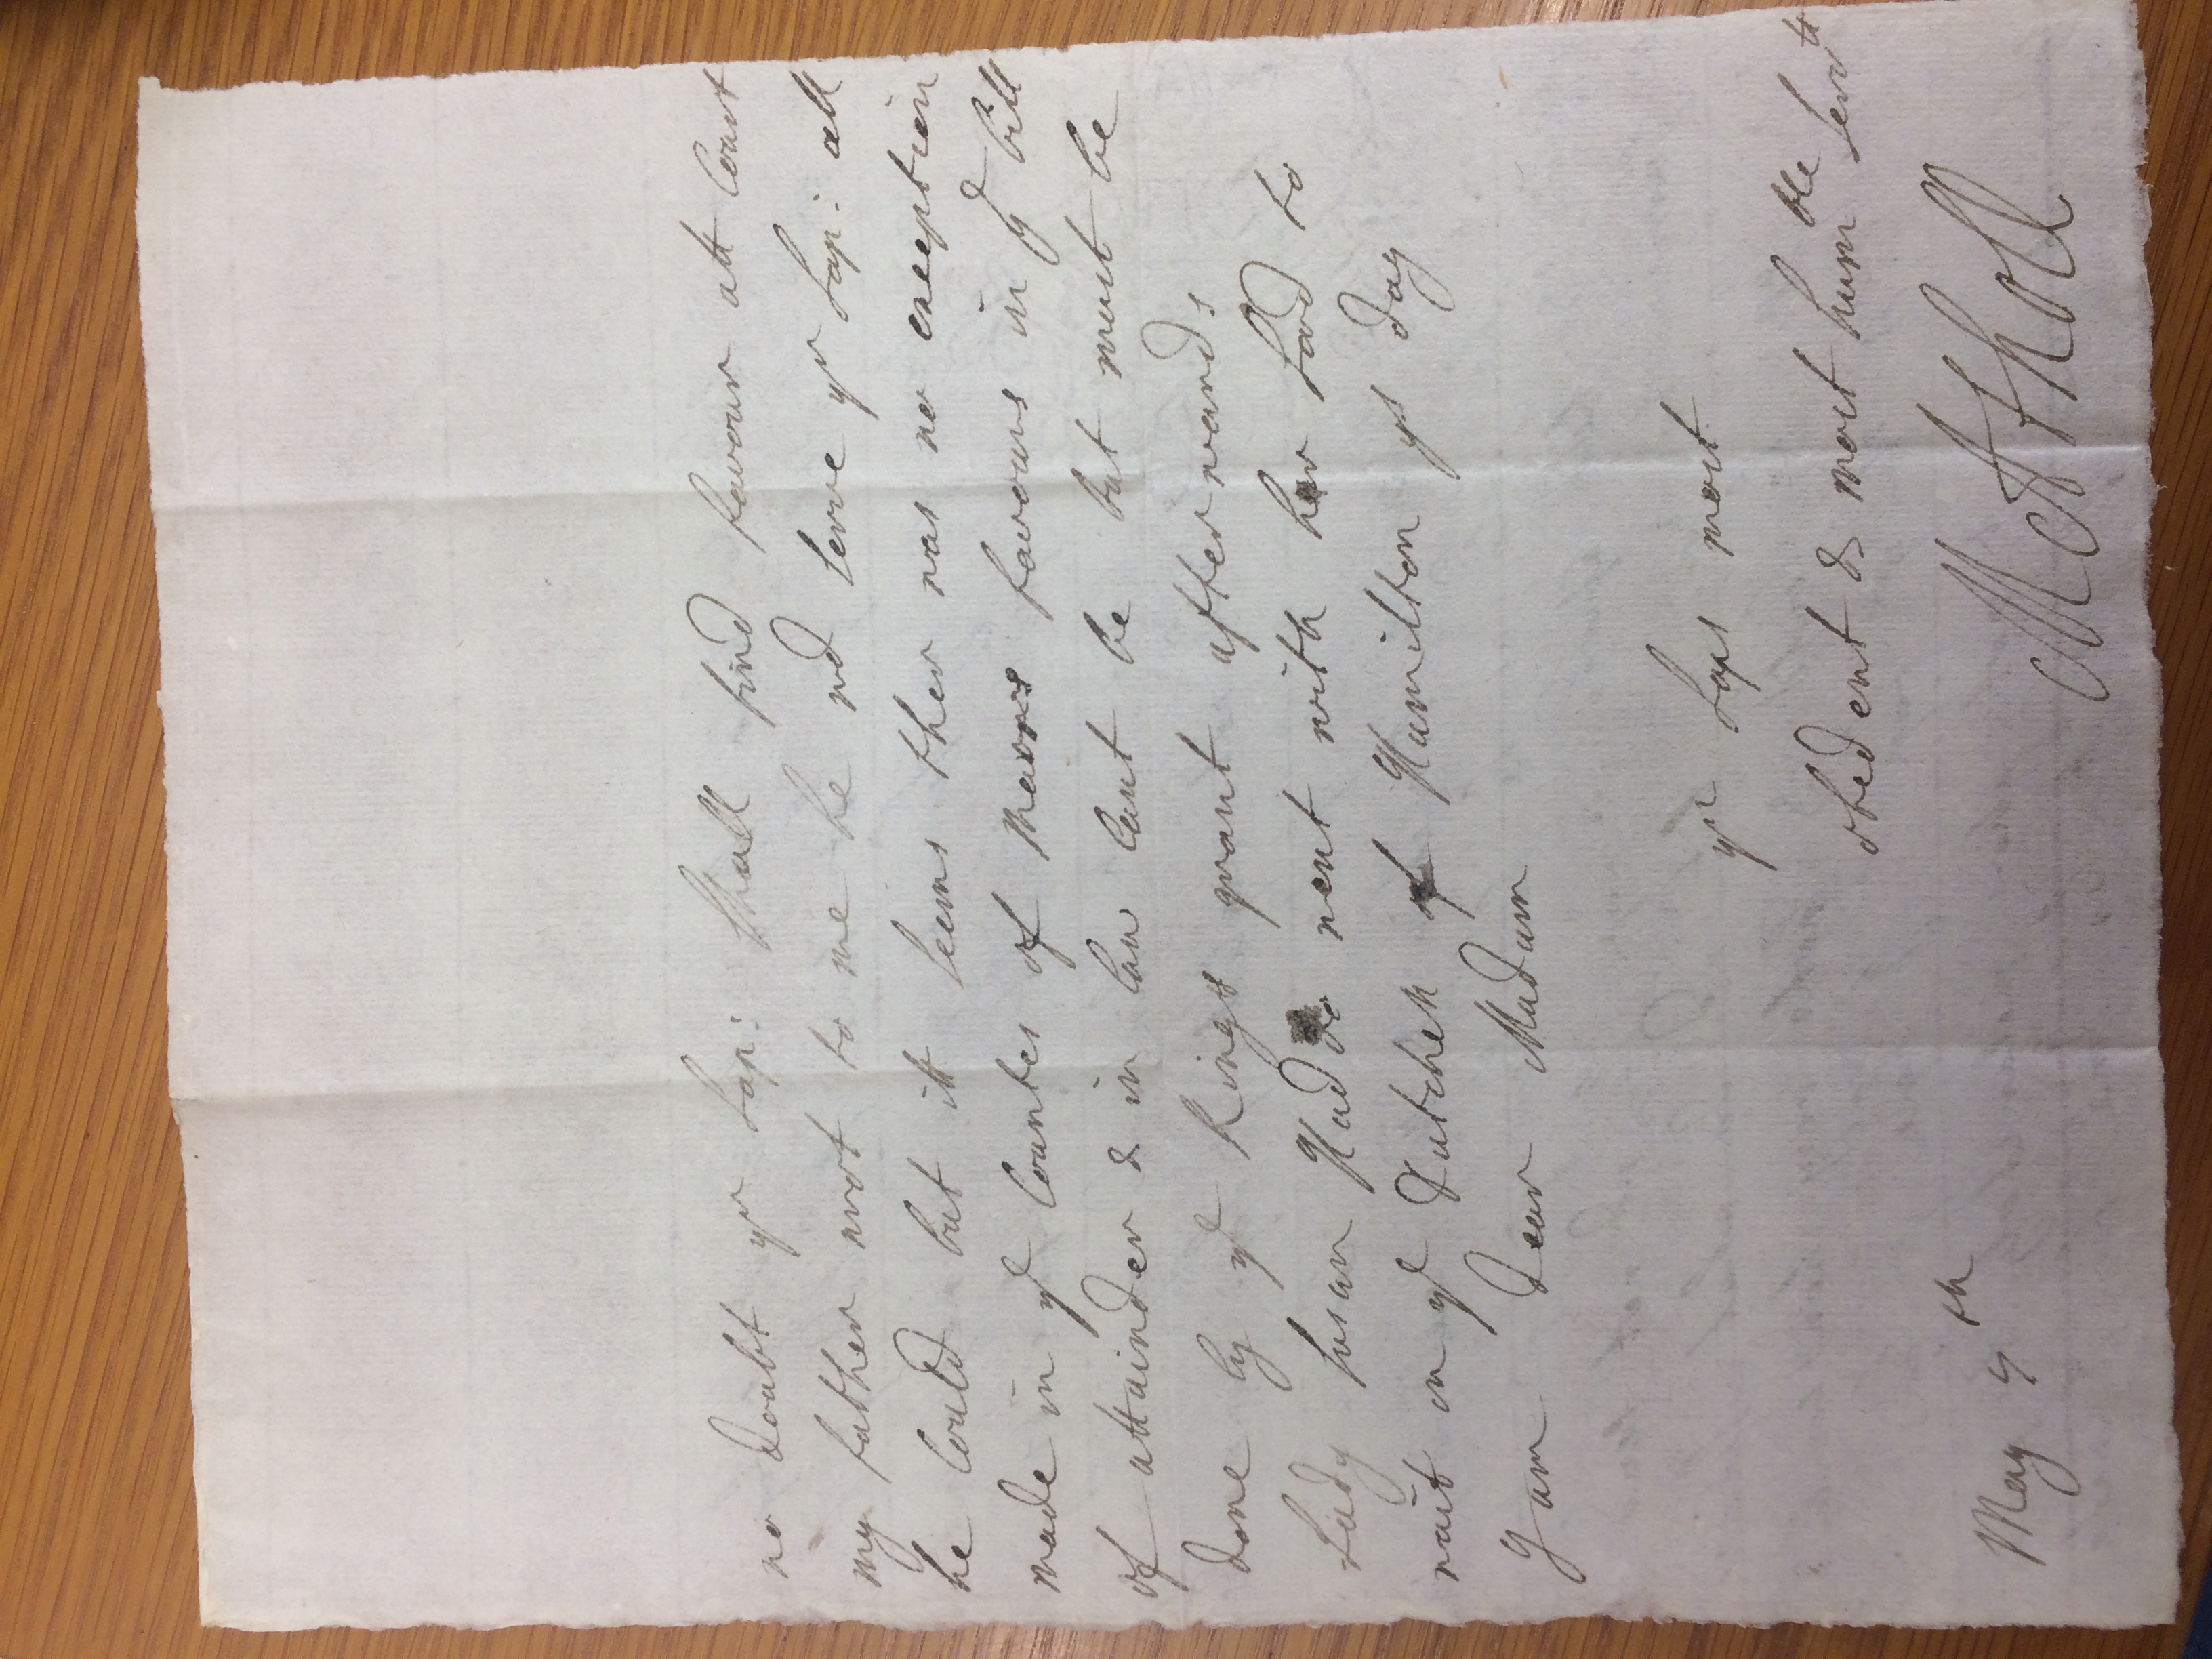 no doubt yr Lap: shall find favour att Court
my father wrot to me he wd serve yr Lap: all
he could but itt seems ther was no exception
made in ye Countes of Marrs favours in ye bill
of attainder & in law cant be but must be
done by ye Kings grant afterwards
Lady Susan Haddo went with her Lord to
wait on ye Dutchess of Hamilton ys day
I am Dear Madam
yr Laps most
obedent & most humble servtt
May 7th
M Atholl